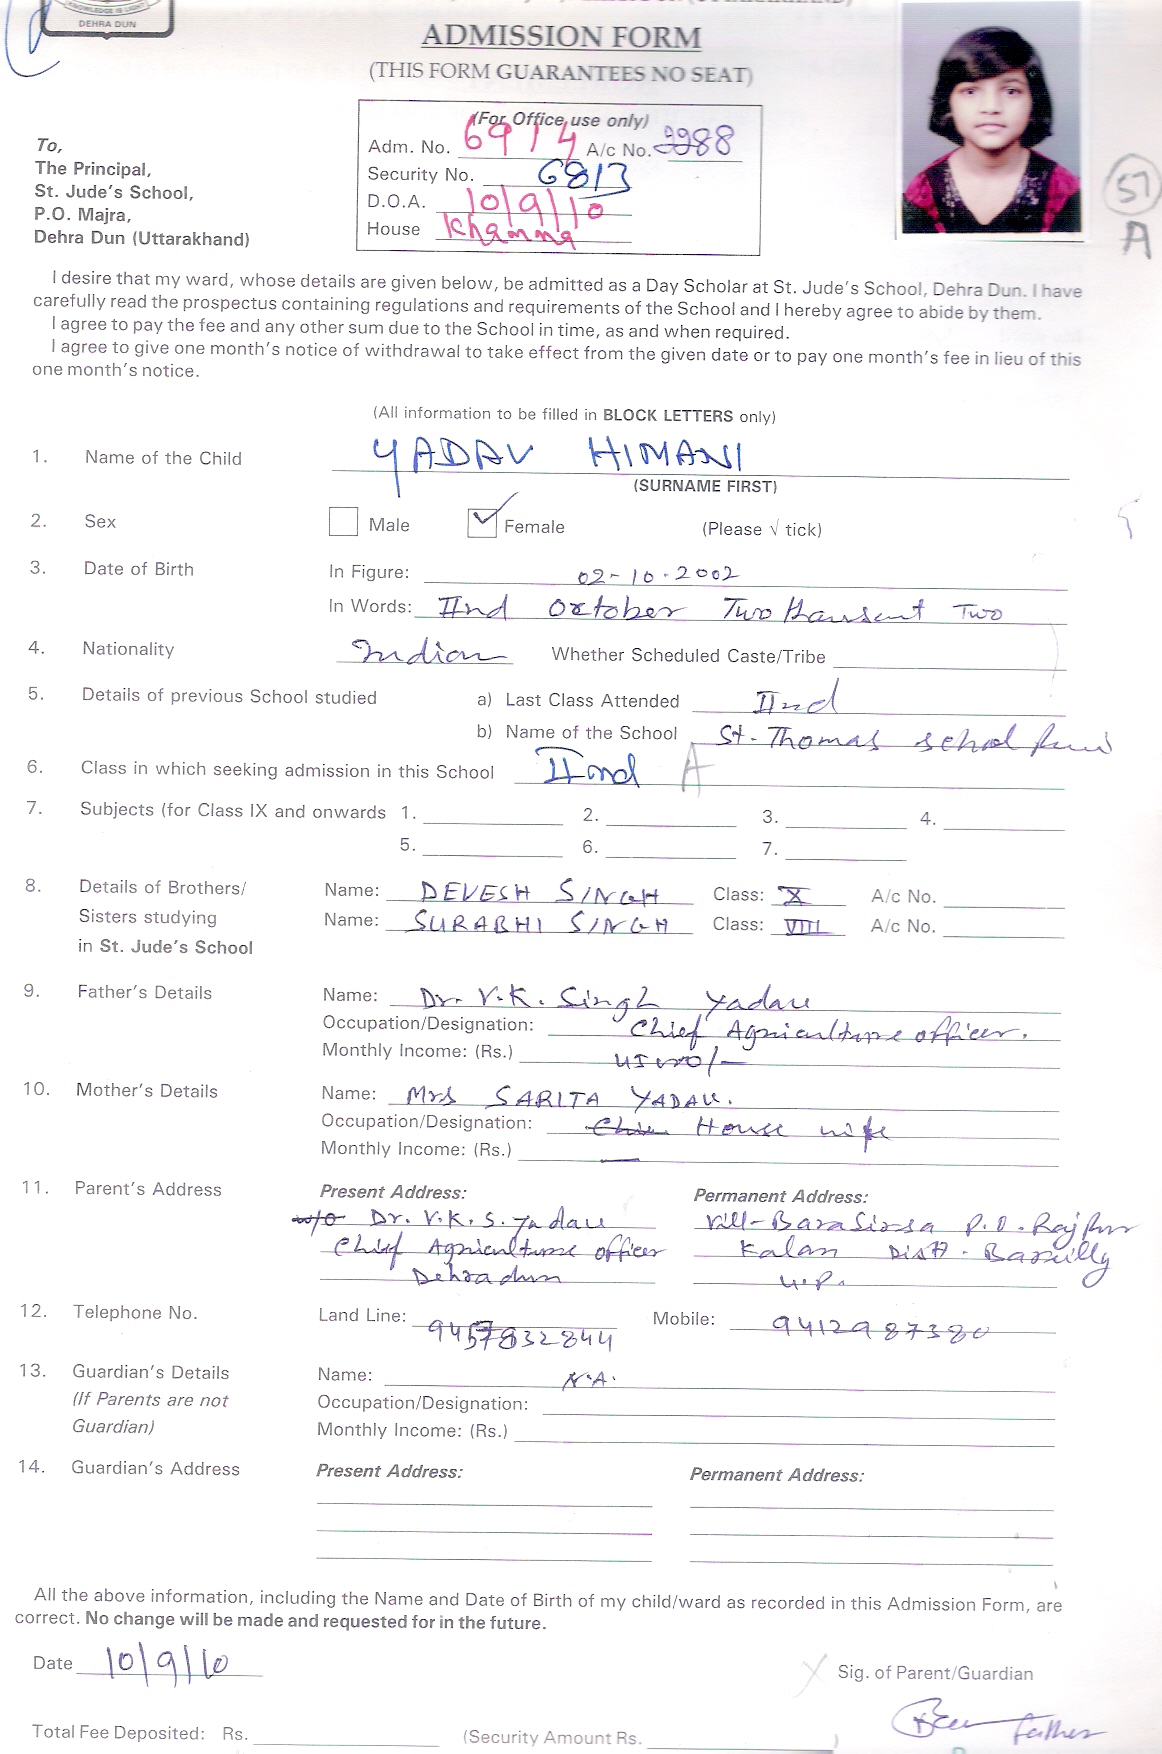 KNOWLEDGE IS LIGHT
DEHRA DUN
ADMISSION FORM
(THIS FORM GUARANTEES NO SEAT)
(For Office use only)
Adm. No. 6914 A/c No. 3988
Security No. 6813
D.O.A. 10/9/10
House Khanna
57
A
To,
The Principal,
St. Jude's School,
P.O. Majra,
Dehra Dun (Uttarakhand)
I desire that my ward, whose details are given below, be admitted as a Day Scholar at St. Jude's School, Dehra Dun. I have
carefully read the prospectus containing regulations and requirements of the School and I hereby agree to abide by them.
I agree to pay the fee and any other sum due to the School in time, as and when required.
I agree to give one month's notice of withdrawal to take effect from the given date or to pay one month's fee in lieu of this
one month's notice.
(All information to be filled in BLOCK LETTERS only)
1. Name of the Child YADAV HIMANI
(SURNAME FIRST)
2. Sex Male ✓ Female (Please √ tick)
3. Date of Birth In Figure: 02-10-2002
In Words: IInd October Two thausent Two
4. Nationality Indian Whether Scheduled Caste/Tribe
5. Details of previous School studied a) Last Class Attended IInd
b) Name of the School St. Thomas school
6. Class in which seeking admission in this School IInd A
7. Subjects (for Class IX and onwards 1. 2. 3. 4.
5. 6. 7.
8. Details of Brothers/ Name: DEVESH SINGH Class: X A/c No.
Sisters studying Name: SURABHI SINGH Class: VIII A/c No.
in St. Jude's School
9. Father's Details Name: Dr. V.K. Singh Yadav
Occupation/Designation: Chief Agriculture officer.
Monthly Income: (Rs.)
10. Mother's Details Name: Mrs SARITA YADAV.
Occupation/Designation: House wife
Monthly Income: (Rs.) —
11. Parent's Address Present Address: Permanent Address:
w/o Dr. V.K.S. Yadav Vill- Bara Sirsa P.O. Rajpur
Chief Agriculture officer Kalan Distt. Bareilly
Dehradun U.P.
12. Telephone No. Land Line: 9457832844 Mobile: 9412987380
13. Guardian's Details Name: N.A.
(If Parents are not Occupation/Designation:
Guardian) Monthly Income: (Rs.)
14. Guardian's Address Present Address: Permanent Address:
All the above information, including the Name and Date of Birth of my child/ward as recorded in this Admission Form, are
correct. No change will be made and requested for in the future.
Date 10/9/10
X Sig. of Parent/Guardian
father
Total Fee Deposited: Rs. (Security Amount Rs. )